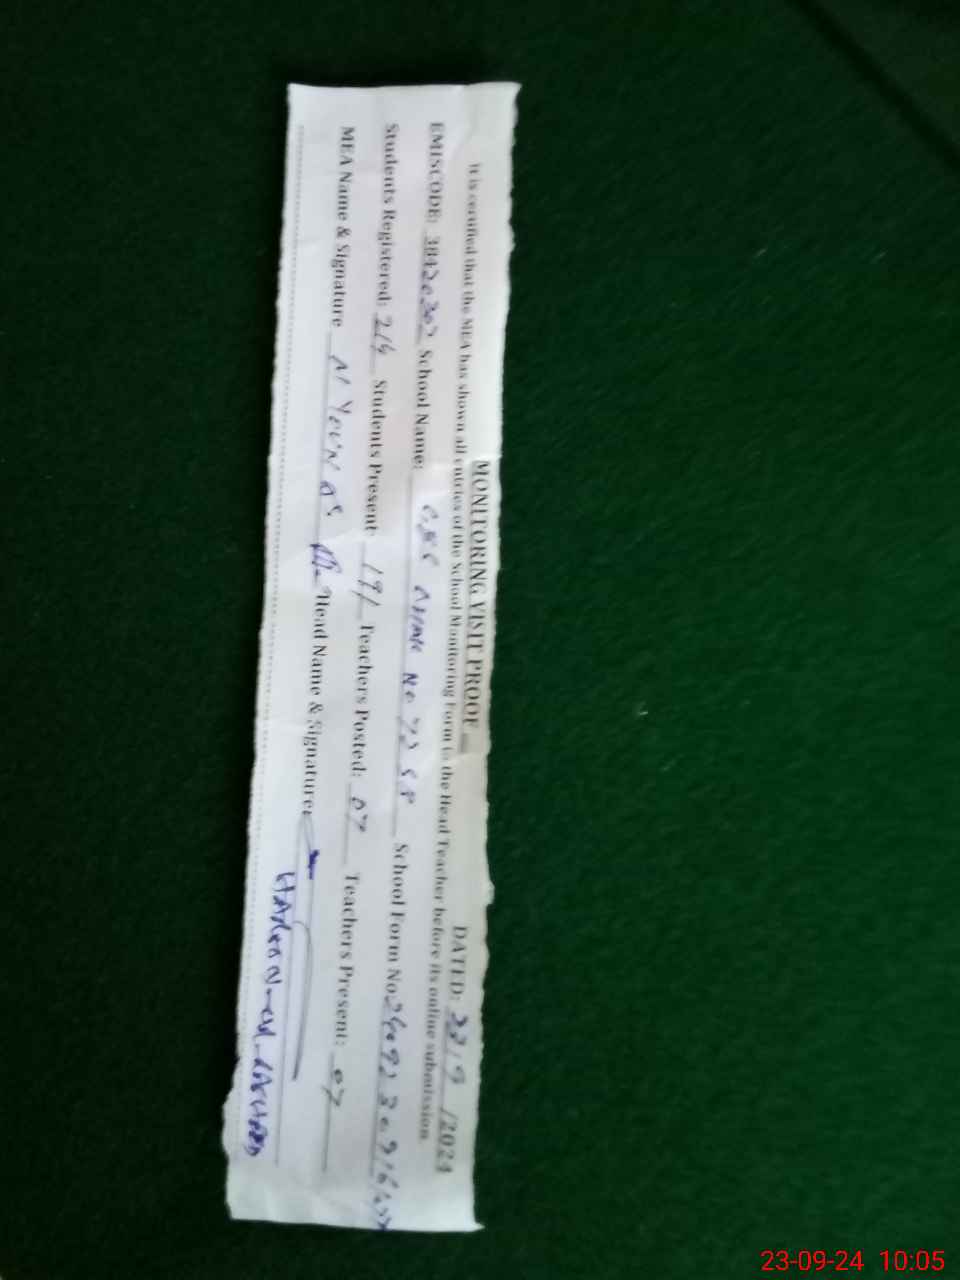 MONITORING VISIT PROOF DATED: 23/9/2024
It is certified that the MEA has shown all entries of the School Monitoring Form to the Head Teacher before its online submission
EMISCODE: 38420307 School Name: School Form No
Students Registered: 214 Students Present: 191 Teachers Posted: 07 Teachers Present: 07
MEA Name & Signature M YOUNAS Head Name & Signature:
23-09-24 10:05